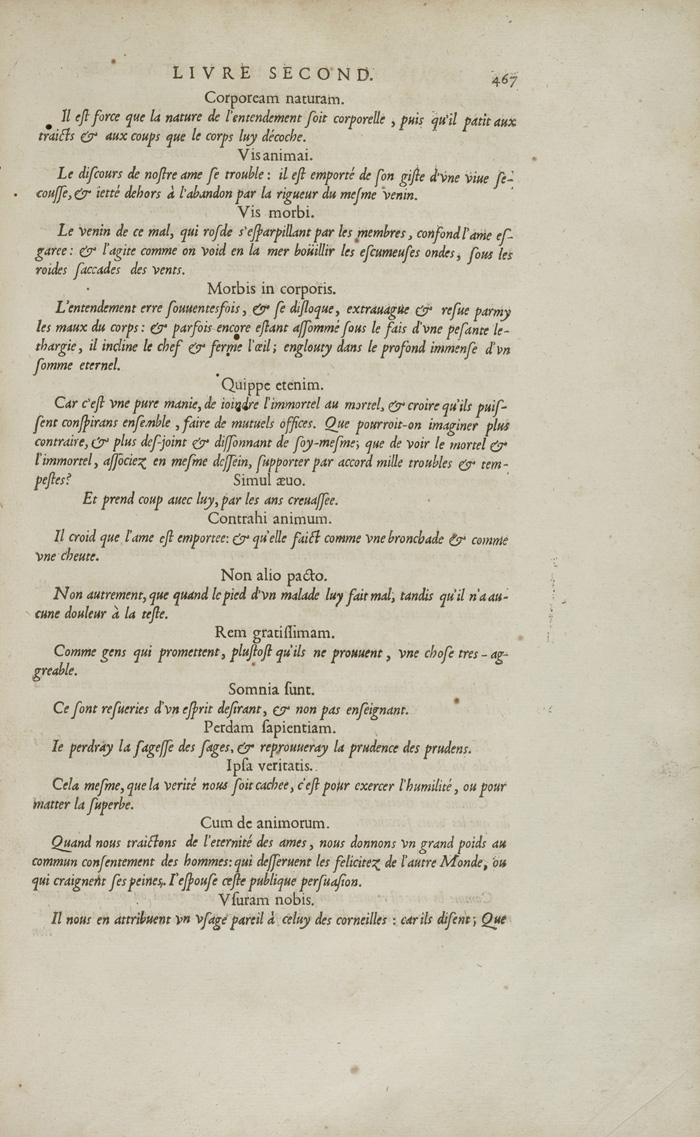 LIVRE SECOND. 467
Corpoream naturam.
Il eſt force que la nature de l'entendement ſoit corporelle, puis qu'il patit aux
traicts & aux coups que le corps luy décoche.
Vis animai.
Le diſcours de noſtre ame ſe trouble : il eſt emporté de ſon giſte d'vne viue ſe-
couſſe, & ietté dehors à l'abandon par la rigueur du meſme venin.
Vis morbi.
Le venin de ce mal, qui rosde s'eſparpillant par les membres, confond l'ame eſ-
garee : & l'agite comme on void en la mer boüillir les eſcumeuſes ondes, ſous les
roides ſaccades des vents.
Morbis in corporis.
L'entendement erre ſouuentesfois, & ſe diſloque, extrauague & reſue parmy
les maux du corps : & parfois encore eſtant aſſommé ſous le fais d'vne peſante le-
thargie, il incline le chef & ferme l'œil ; englouty dans le profond immenſe d'vn
ſomme eternel.
Quippe etenim.
Car c'eſt vne pure manie, de ioindre l'immortel au mortel, & croire qu'ils puiſ-
ſent conſpirans enſemble, faire de mutuels offices. Que pourroit-on imaginer plus
contraire, & plus deſ-joint & diſſonnant de ſoy-meſme ; que de voir le mortel &
l'immortel, aſſociez en meſme deſſein, ſupporter par accord mille troubles & tem-
peſtes ? Simul æuo.
Et prend coup auec luy, par les ans creuaſſee.
Contrahi animum.
Il croid que l'ame eſt emportee : & qu'elle faict comme vne bronchade & comme
vne cheute.
Non alio pacto.
Non autrement, que quand le pied d'vn malade luy fait mal, tandis qu'il n'a au-
cune douleur à la teſte.
Rem gratiſſimam.
Comme gens qui promettent, pluſtoſt qu'ils ne prouuent, vne choſe tres-ag-
greable.
Somnia ſunt.
Ce ſont reſueries d'vn eſprit deſirant, & non pas enſeignant.
Perdam ſapientiam.
Ie perdray la ſageſſe des ſages, & reprouueray la prudence des prudens.
Ipſa veritatis.
Cela meſme, que la verité nous ſoit cachee, c'eſt pour exercer l'humilité, ou pour
matter la ſuperbe.
Cum de animorum.
Quand nous traictons de l'eternité des ames, nous donnons vn grand poids au
commun conſentement des hommes : qui deſſeruent les felicitez de l'autre Monde, ou
qui craignent ſes peines. I'eſpouſe ceſte publique perſuaſion.
Vſuram nobis.
Il nous en attribuent vn vſage pareil à celuy des corneilles : car ils diſent ; Que